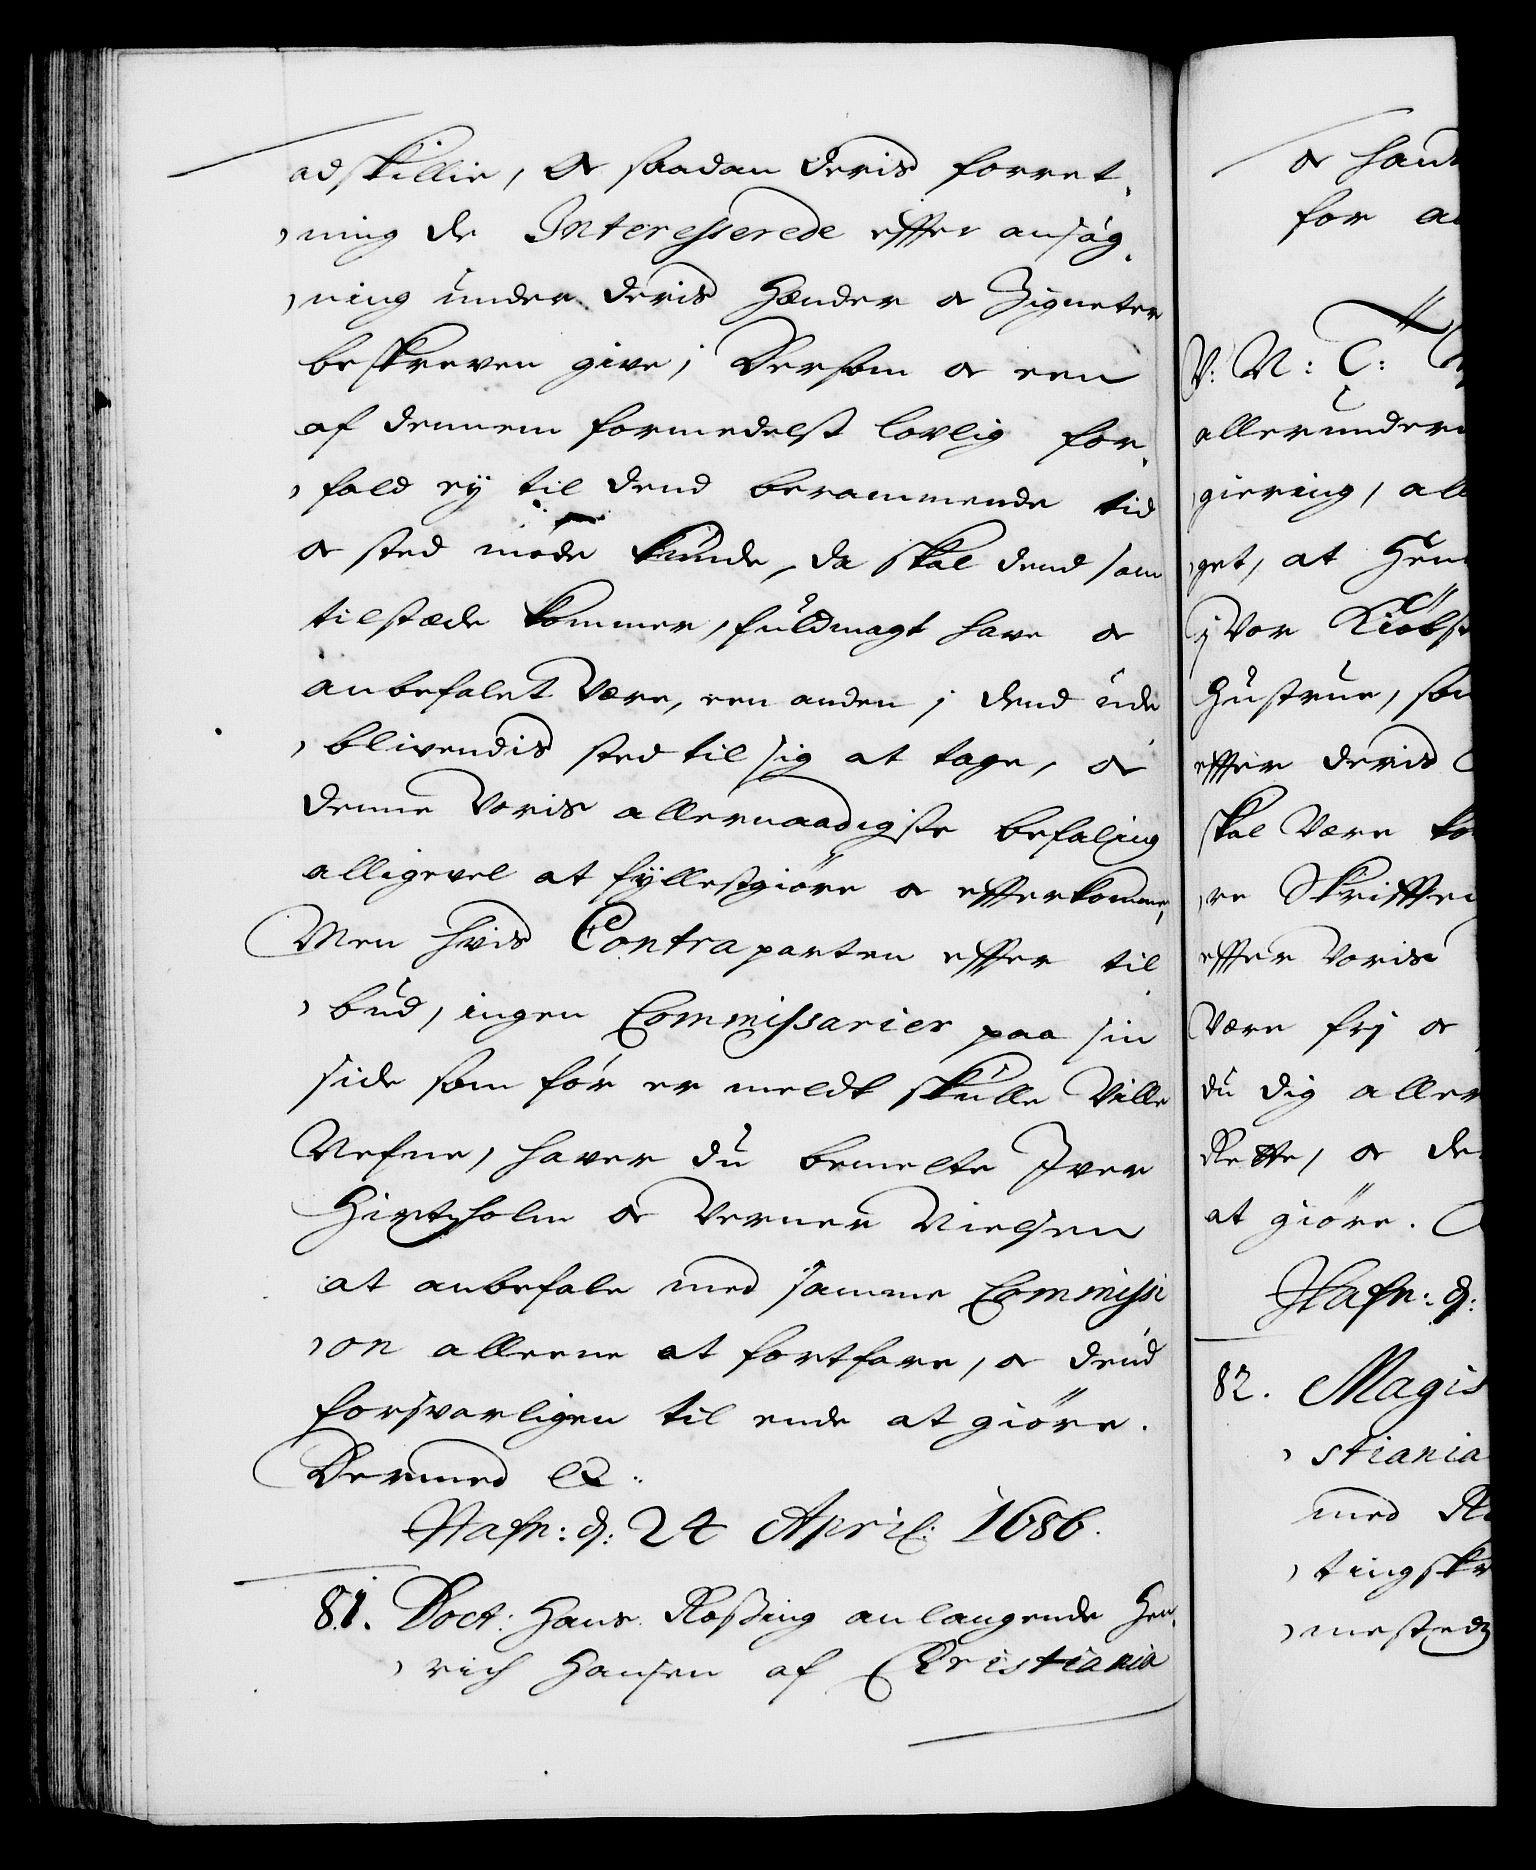 adskillie, Og saadan deris forret-
ning de Interesserede effter ansøg-
ning under deris Hænder og Zigneter
beskreven give; Dersom og een
af dennem formedelst lovlig for-
fald ey til dend berammende tid
og sted møde kunde, da skal dend som
tilstæde kommer, fuldmagt have og
anbefalet være, een anden j dend ude
blivendis sted til sig at tage, og
denne voris allernaadigste befaling
alligevel at fyllestgiöre og effterkomme,
Men hvis Contraparten effter til-
bud, ingen Commissarier paa sin
side som før er meldt skulle ville
Nefne, haver du bemelte Iver
Hirtzholm og Verner Nielsen
at anbefale med samme Commissi
on alleene at fortfare, og dend
forsvarligen til ende at giöre.
Dermed &.
Hafn: d: 24 April: 1686.
81. Doct: Hans Roßing anlangende Hen-
rich Hansen af Christiania
og hand
for
V: N: C:
allerunder
giering, all
get, at Hen
j vor Kiöbst
Hustrue, som
effter deris
skal være
re Skriffte
effter voris
være frj og
du dig aller
Rette, og
at giöre.
Hafn: d:
82. Magis
stiania
med
tingskr
mestedz